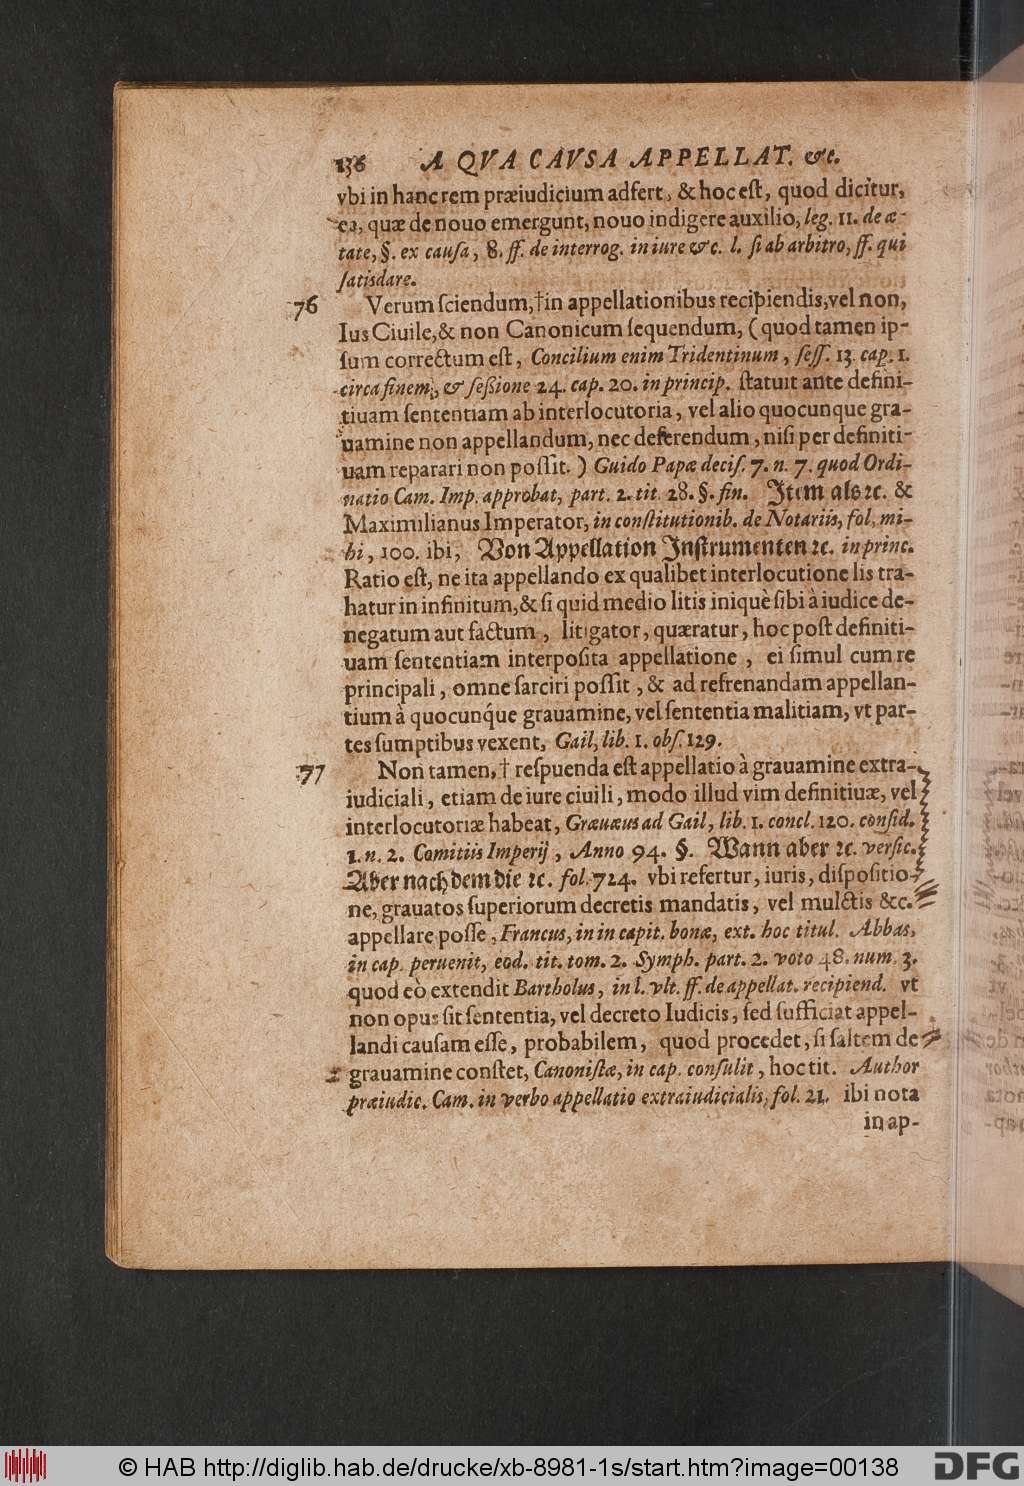 136 A QVA CAVSA APPELLAT. &c.
vbi in hanc rem præiudicium adfert, & hoc eſt, quod dicitur,
ea, quæ de nouo emergunt, nouo indigere auxilio, leg. 11. de æ-
tate, §. ex cauſa, 8. ff. de interrog. in iure &c. l. ſi ab arbitro, ff. qui
ſatisdare.
76 Verum ſciendum, † in appellationibus recipiendis, vel non,
Ius Ciuile, & non Canonicum ſequendum, (quod tamen ip-
ſum correctum eſt, Concilium enim Tridentinum, ſeſſ. 13. cap. 1.
circa finem, & ſeßione 24. cap. 20. in princip. ſtatuit ante defini-
tiuam ſententiam ab interlocutoria, vel alio quocunque gra-
uamine non appellandum, nec deferendum, niſi per definiti-
uam reparari non poſſit.) Guido Papæ deciſ. 7. n. 7. quod Ordi-
natio Cam. Imp. approbat, part. 2. tit. 28. §. fin. Item als ꝛc. &
Maximilianus Imperator, in conſtitutionib. de Notariis, fol. mi-
hi, 100. ibi, Von Appellation Inſtrumenten ꝛc. in princ.
Ratio eſt, ne ita appellando ex qualibet interlocutione lis tra-
hatur in infinitum, & ſi quid medio litis iniquè ſibi à iudice de-
negatum aut factum, litigator, quæratur, hoc poſt definiti-
uam ſententiam interpoſita appellatione, ei ſimul cum re
principali, omne ſarciri poſſit, & ad refrenandam appellan-
tium à quocunq́ue grauamine, vel ſententia malitiam, vt par-
tes ſumptibus vexent, Gail, lib. 1. obſ. 129.
77 Non tamen, † reſpuenda eſt appellatio à grauamine extra-
iudiciali, etiam de iure ciuili, modo illud vim definitiuæ, vel
interlocutoriæ habeat, Græuæus ad Gail, lib. 1. concl. 120. conſid.
1. n. 2. Comitiis Imperij, Anno 94. §. Wann aber ꝛc. verſic.
Aber nach dem die ꝛc. fol. 724. vbi refertur, iuris, diſpoſitio-
ne, grauatos ſuperiorum decretis mandatis, vel mulctis &c.
appellare poſſe, Francus, in in capit. bonæ, ext. hoc titul. Abbas,
in cap. peruenit, eod. tit. tom. 2. Symph. part. 2. voto 48. num. 3.
quod eò extendit Bartholus, in l. vlt. ff. de appellat. recipiend. vt
non opus ſit ſententia, vel decreto Iudicis, ſed ſufficiat appel-
landi cauſam eſſe, probabilem, quod procedet, ſi ſaltem de
grauamine conſtet, Canoniſtæ, in cap. conſulit, hoc tit. Author
præiudic. Cam. in verbo appellatio extraiudicialis, fol. 21. ibi nota
in ap-
© HAB http://diglib.hab.de/drucke/xb-8981-1s/start.htm?image=00138
DFG